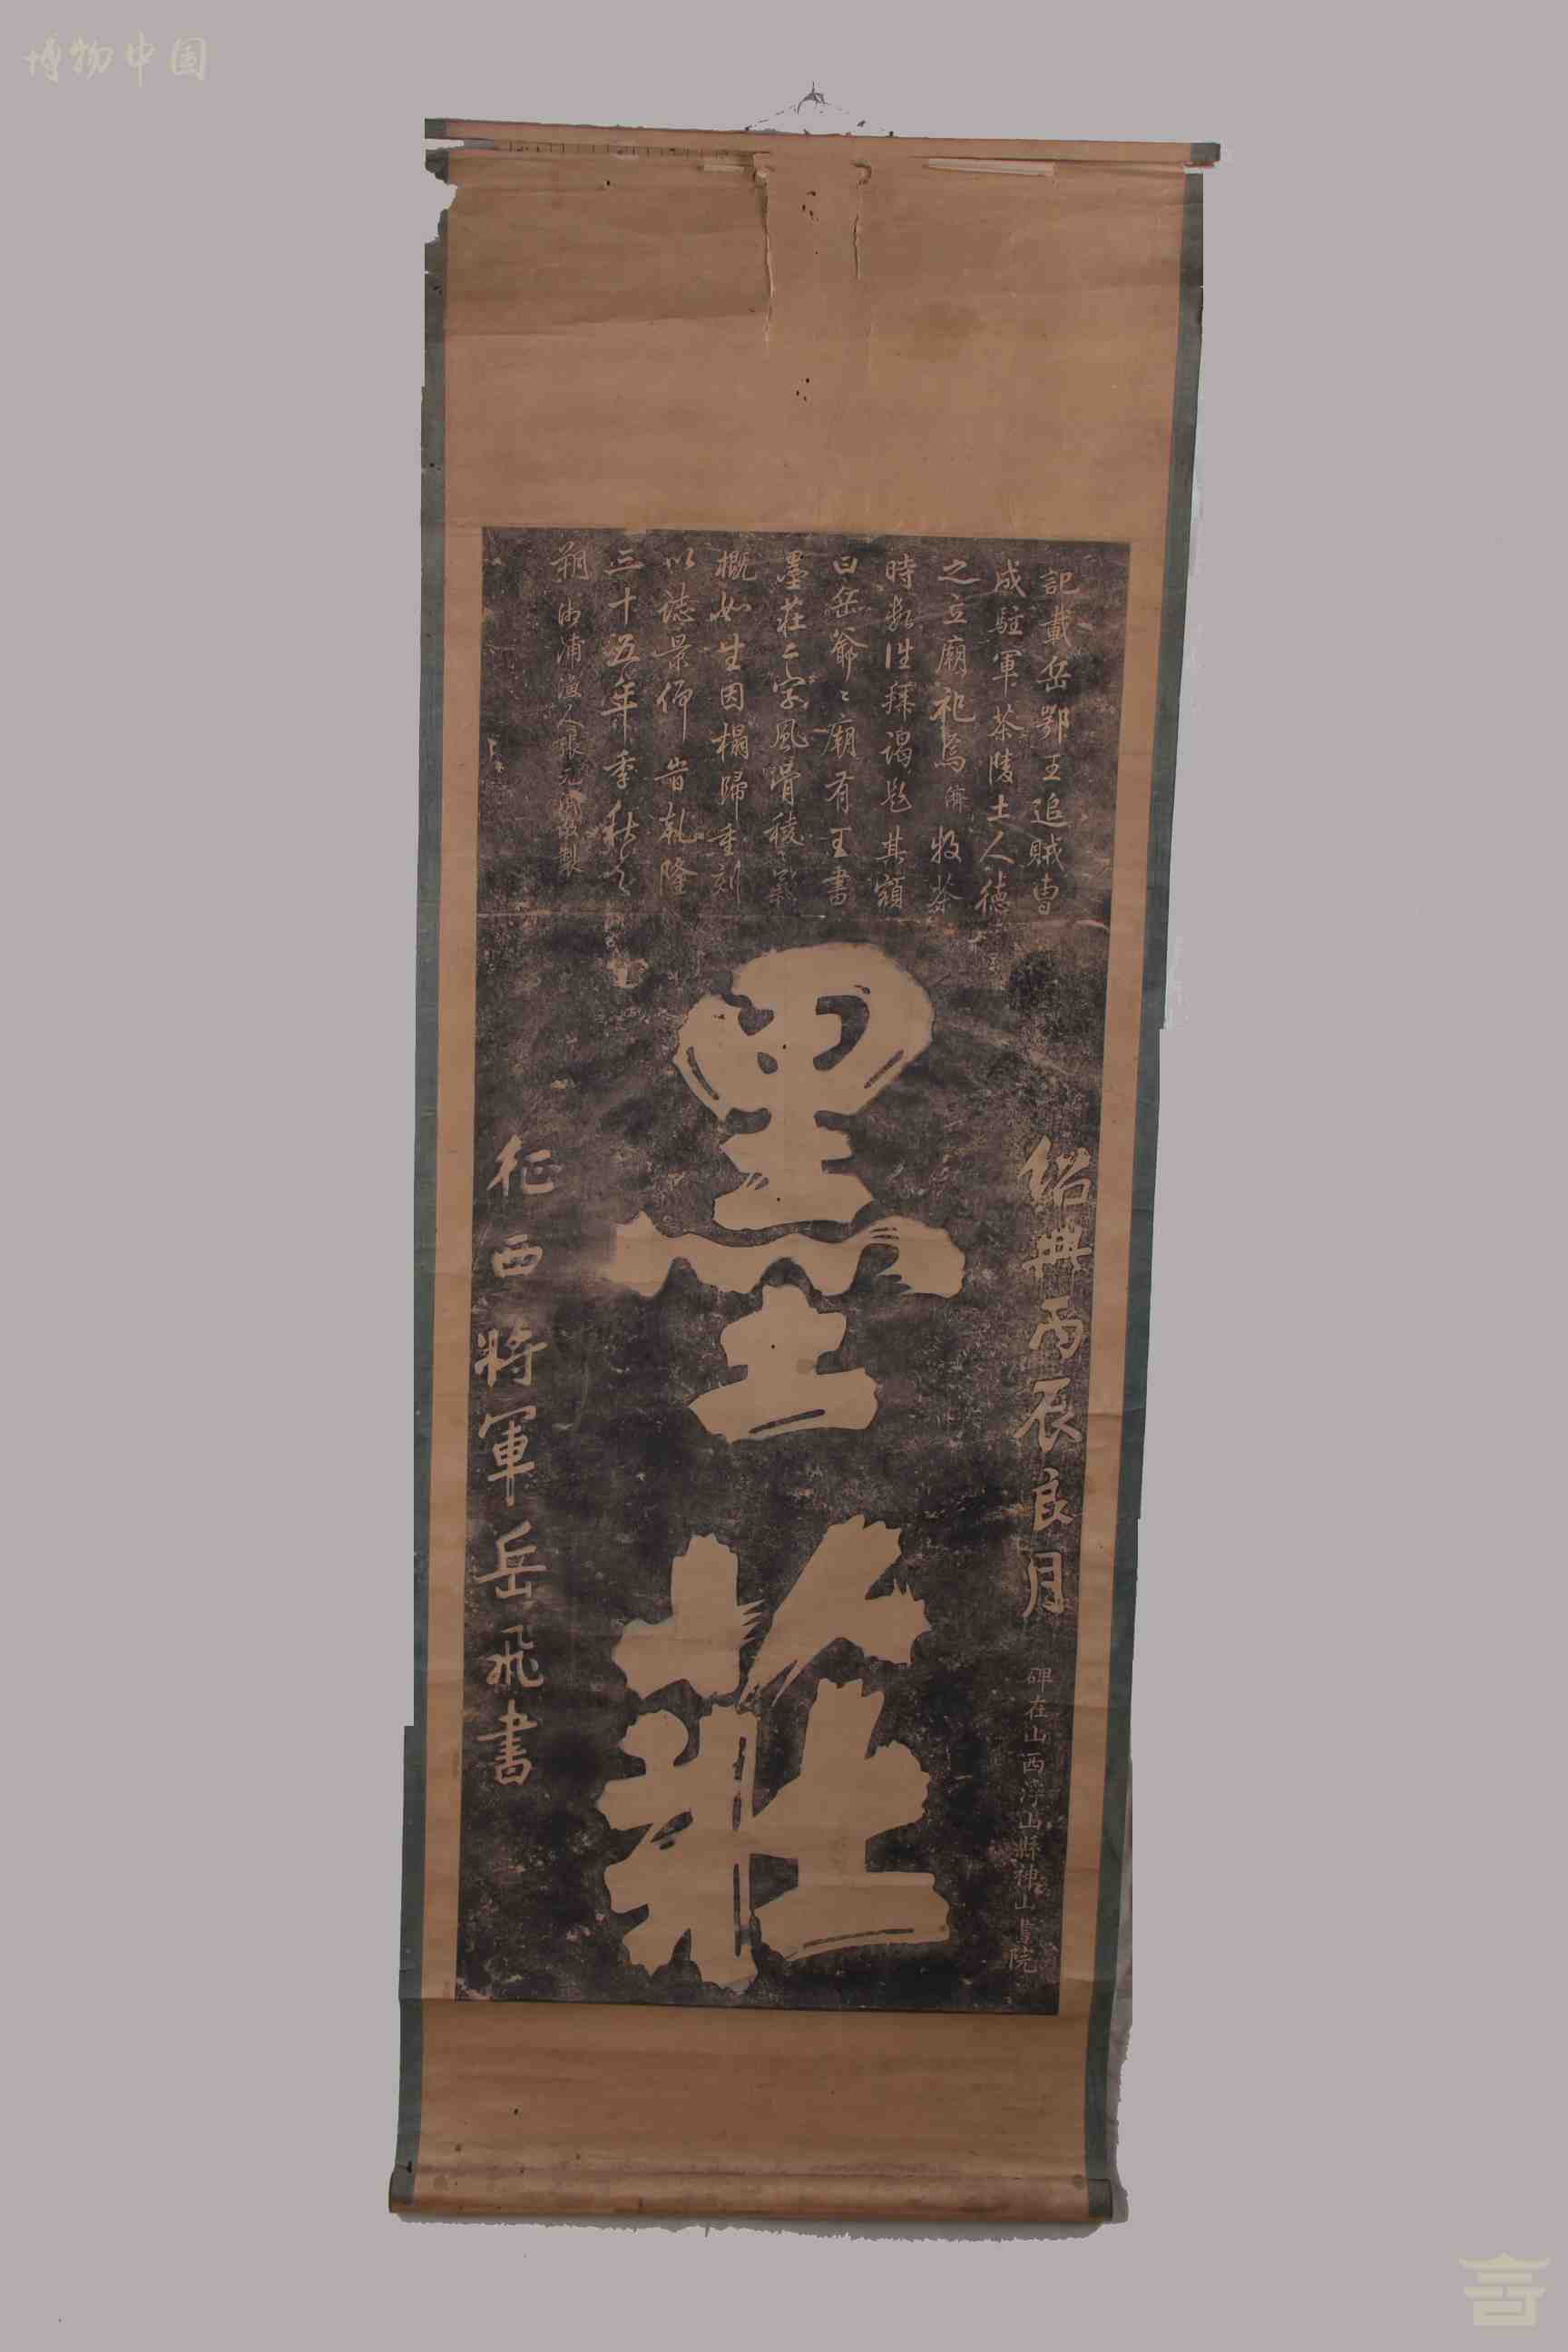 博物中国
記載岳鄂王追賊曹
成駐軍茶陵土人德
之立廟祀焉 牧茶
時數往拜謁題其額
曰岳爺〻廟有王書
墨莊二字風骨稜〻
概如生因榻歸重刻
以誌景仰 旹乾隆
三十五年季秋之
朔 浦漁人張元
墨莊
紹興丙辰良月
碑在山西浮山縣神山書院
征西將軍岳飛書